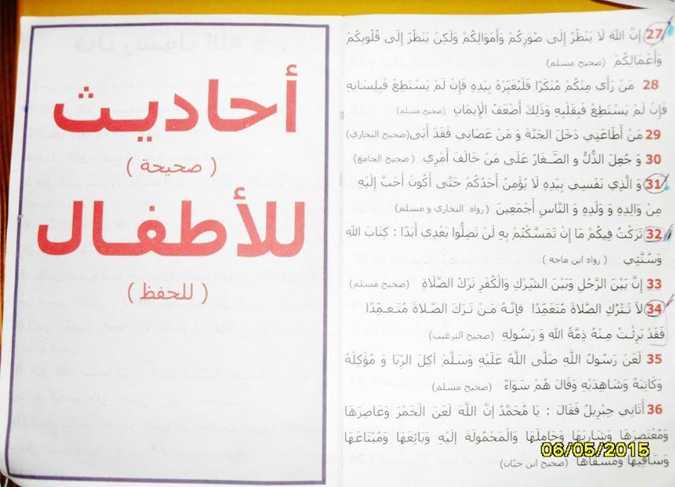 أحاديث
( صحيحة )
للأطفال
( للحفظ )
27 إِنَّ اللهَ لَا يَنْظُرُ إِلَى صُوَرِكُمْ وَأَمْوَالِكُمْ وَلَكِنْ يَنْظُرُ إِلَى قُلُوبِكُمْ
وَأَعْمَالِكُمْ (صحيح مسلم)
28 مَنْ رَأَى مِنْكُمْ مُنْكَرًا فَلْيُغَيِّرْهُ بِيَدِهِ فَإِنْ لَمْ يَسْتَطِعْ فَبِلِسَانِهِ
فَإِنْ لَمْ يَسْتَطِعْ فَبِقَلْبِهِ وَذَلِكَ أَضْعَفُ الْإِيمَانِ (صحيح مسلم)
29 مَنْ أَطَاعَنِي دَخَلَ الجَنَّةَ وَ مَنْ عَصَانِي فَقَدْ أَبَى(صحيح البخاري)
30 وَ جُعِلَ الذُّلُّ و الصَّغَارُ عَلَى مَنْ خَالَفَ أَمْرِي (صحيح الجامع)
31 وَ الَّذِي نَفْسِي بِيَدِهِ لَا يُؤْمِنُ أَحَدُكُمْ حَتَّى أَكُونَ أَحَبَّ إِلَيْهِ
مِنْ وَالِدِهِ وَ وَلَدِهِ وَ النَّاسِ أَجْمَعِينَ (رواه البخاري و مسلم)
32 تَرَكْتُ فِيكُمْ مَا إِنْ تَمَسَّكْتُمْ بِهِ لَنْ تَضِلُّوا بَعْدِي أَبَدًا : كِتَابَ اللهِ
وَ سُنَّتِي ( رواه ابن ماجه )
33 إِنَّ بَيْنَ الرَّجُلِ وَبَيْنَ الشِّرْكِ وَالْكُفْرِ تَرْكَ الصَّلَاةِ (صحيح مسلم)
34 لَا تَتْرُكِ الصَّلَاةَ مُتَعَمِّدًا فَإِنَّهُ مَنْ تَرَكَ الصَّلَاةَ مُتَعَمِّدًا
فَقَدْ بَرِئَتْ مِنْهُ ذِمَّةُ اللهِ وَ رَسُولِهِ (صحيح الترغيب)
35 لَعَنَ رَسُولُ اللَّهِ صَلَّى اللَّهُ عَلَيْهِ وَسَلَّمَ آكِلَ الرِّبَا وَ مُؤْكِلَهُ
وَكَاتِبَهُ وَشَاهِدَيْهِ وَقَالَ هُمْ سَوَاءٌ (صحيح مسلم)
36 أَتَانِي جِبْرِيلُ فَقَالَ : يَا مُحَمَّدُ إِنَّ اللَّهَ لَعَنَ الْخَمْرَ وَعَاصِرَهَا
وَمُعْتَصِرَهَا وَشَارِبَهَا وَحَامِلَهَا وَالْمَحْمُولَةَ إِلَيْهِ وَبَائِعَهَا وَمُبْتَاعَهَا
وَسَاقِيَهَا وَمُسْقَاهَا (صحيح ابن حبان)
06/05/2015